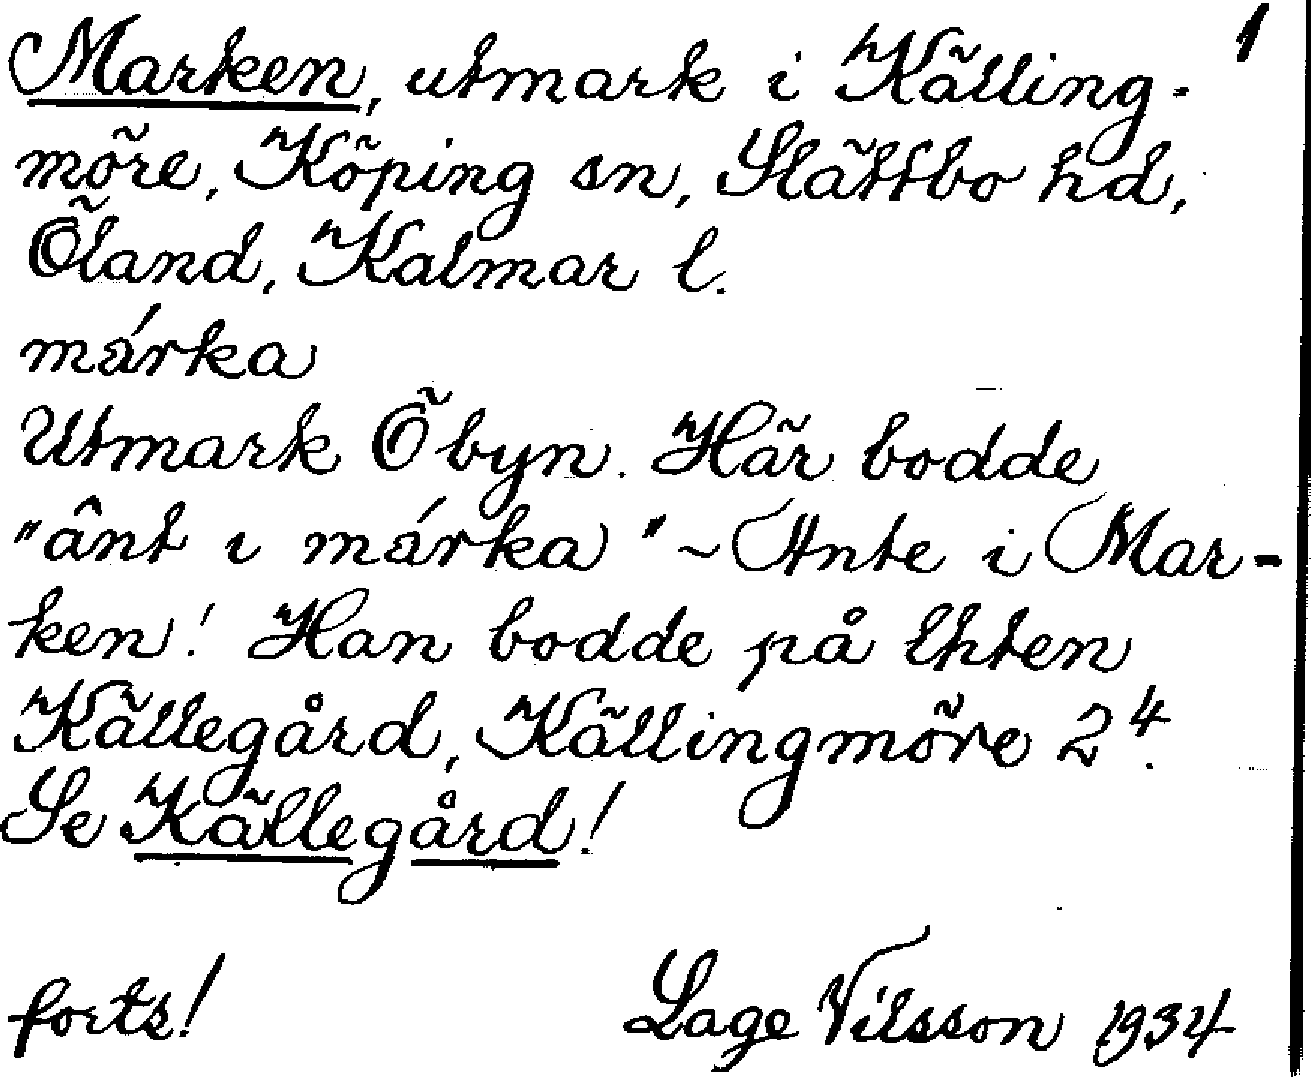 1
Marken, utmark i Källing-
möre, Köping sn, Slättbo hd,
Öland, Kalmar l.
márka
Utmark Öbyn. Här bodde
"ânt ı márka" ~ Ante i Mar-
ken! Han bodde på lhten
Källegård, Källingmöre 2⁴.
Se Källegård!
forts! Lage Nilsson 1934